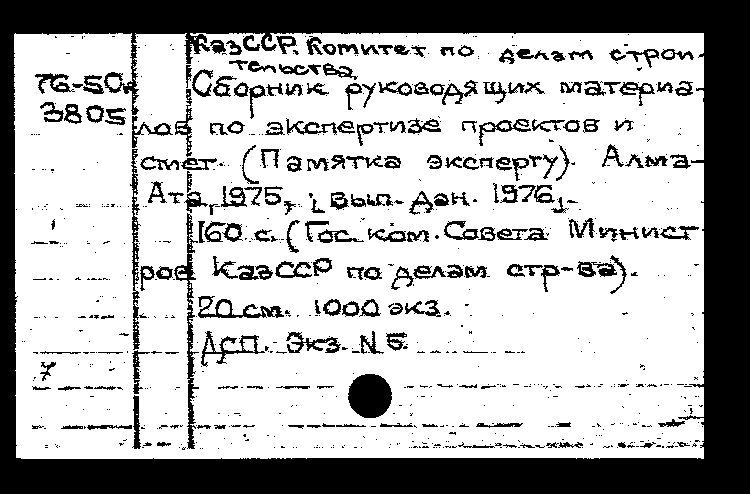 КазССР. Комитет по делам строи-
тельства.
76-50к
3805
Сборник руководящих материа-
лов по экспертизе проектов и
смет. (Памятка эксперту). Алма-
Ата, 1975, [вып. дан. 1976].
160 с. (Гос. ком. Совета Минист-
ров КазССР по делам стр-ва).
20 см. 1000 экз.
ДСП. Экз. N 5.
7